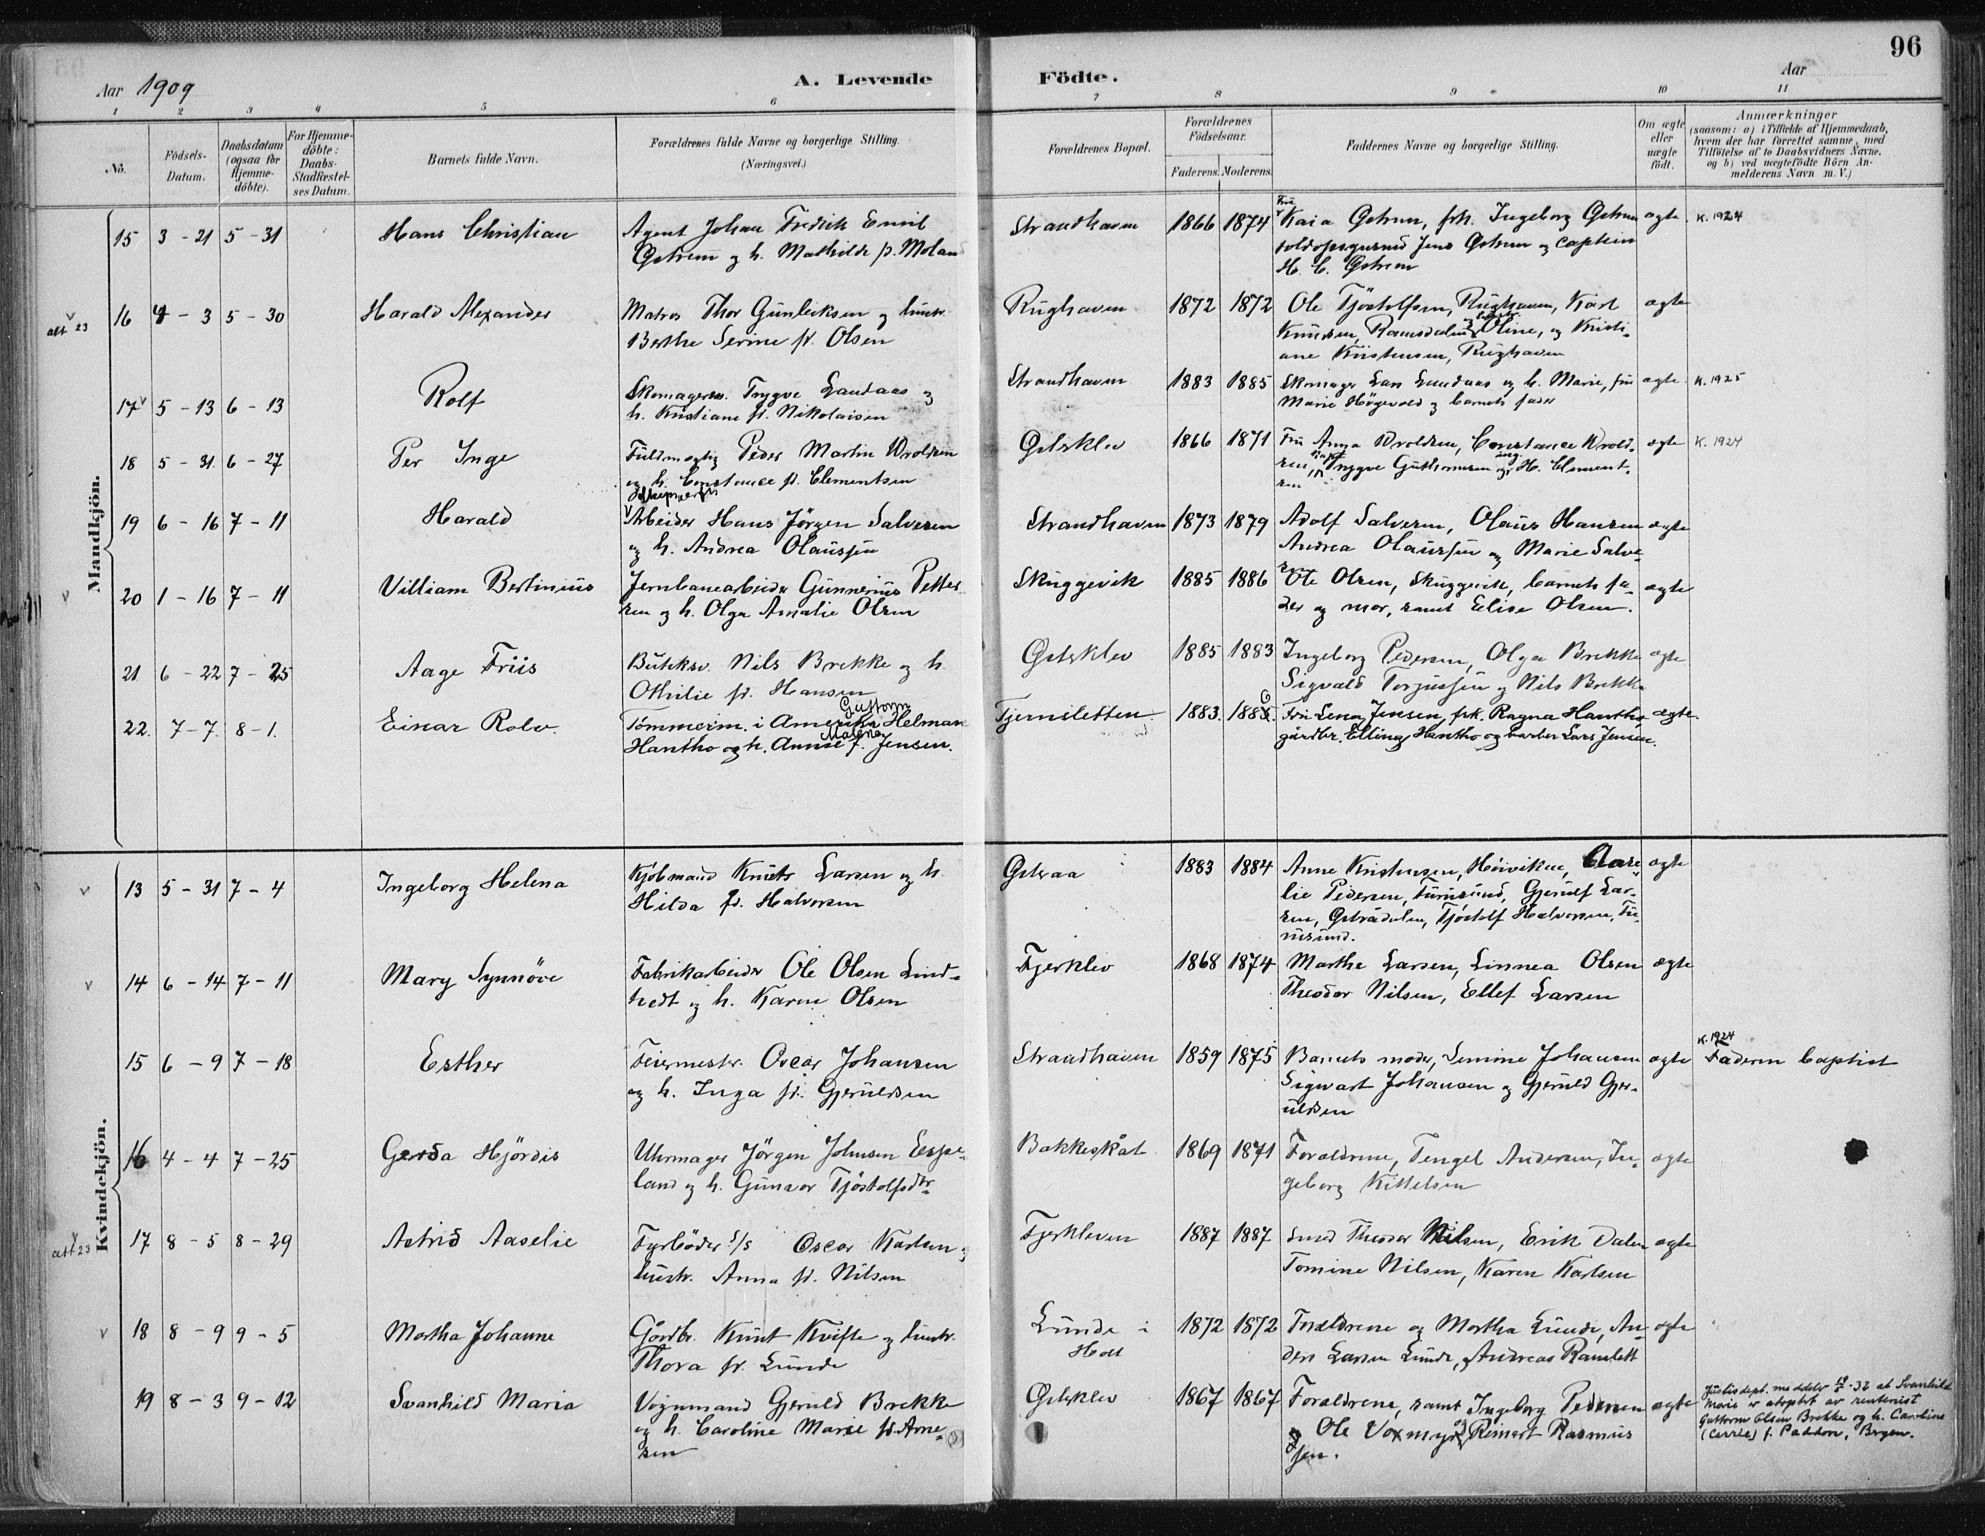 96
Aar 1909
A. Levende Födte.
Aar
1 2 3 4 5 6 7 8 9 10 11
No.
Födsels-Datum.
Daabsdatum (ogsaa for Hjemme-döbte).
For Hjemme-döbte: Daabs-Stadfæstel-ses Datum.
Barnets fulde Navn.
Forældrenes fulde Navne og borgerlige Stilling.
(Næringsvei.)
Forældrenes Bopæl.
Forældrenes Födselsaar.
Faderens. Moderens.
Faddernes Navne og borgerlige Stilling.
Om ægte eller uægte født.
Anmærkninger
(saasom: a) i Tilfælde af Hjemmedaab,
hvem der har forrettet samme, med
Tilföielse af to Daabsvidners Navne.
og b) ved uægtefödte Börn An-
melderens Navn m. V.)
Mandkjön.
15 3-21 5-31 Hans Christian
Agent Johan Fredrik Emil
Østrem og h. Mathilde f. Moland
Strandhaven 1866 1874
Fru
Kaia Østrem, frk. Ingeborg Østrem
Jens Østrem og captein
H. C. Østrem
ægte K. 1924
att 23
16 4-3 5-30 Harald Alexander
Matros Thor Gunleiksen og hustr.
Berthe Serine f. Olsen
Rughaven 1872 1872
Ole Tjøstolfsen, Rughaven, Karl
Knudsen, Oline, og Kristi-
ane Kristensen, Rughaven
ægte
17 5-13 6-13 Rolf
Skomagersv. Trygve Landaas og
h. Kristiane f. Nikolaisen
Strandhaven 1883 1885
Skomager Lars Landaas og h. Marie, fru
Marie Høgevold og barnets fader
ægte K. 1925
18 5-31 6-27 Per Inge
Fuldmægtig Peder Martin Wroldsen
og h. Constance f. Clementsen
Østeklev 1866 1871
Fru Anna Wroldsen, Constance Wrold-
sen, Trygve og H. Clement-
sen
ægte K. 1924
19 6-16 7-11 Harald
Arbeider Hans Jörgen Salvesen
og h. Andrea Olaussen
Strandhaven 1873 1879
Adolf Salvesen, Olaus Hansen
Andrea Olaussen og Marie Salve-
sen
ægte
20 1-16 7-11 Villiam Bertinius
Jernbanearbeider Gunnerius Petter-
sen og h. Olga Amalie Olsen
Skuggevik 1885 1886
Ole Olsen, Skuggevik, barnets fa-
der og mor, samt Elise Olsen.
ægte
21 6-22 7-25 Aage Friis
Butiksv. Nils Brekke og h.
Othilie f. Hansen
Østeklev 1885 1883
Ingeborg Pedersen, Olga Brekke
Sigvald Torjussen og Nils Brekke
ægte
22. 7-7. 8-1. Einar Rolv.
Guttorm
Tömmerm. i Amerika Helman
Malene
Hantho og h. Annie f. Jensen.
Tjernsletten 1883. 1886
Fru Lena Jensen, frk. Ragna Hantho
gårdbr. Elling Hantho og barber Lars Jensen.
ægte.
Kvindekjön.
13 5-31 7-4 Ingeborg Helena
Kjöbmand Knut Larsen og h.
Hilda f. Halvorsen
Østeraa 1883 1884
Anne Kristensen, Høiviken, Aase-
lie Pedersen, Furusund, Gjerulf Lar-
sen, Østerådalen, Tjöstolf Halvorsen, Fu-
rusund.
ægte
14 6-14 7-11 Mary Synnöve
Fabrikarbeider Ole Olsen Lind-
tvedt og h. Karen Olsen
Fjerklev 1868 1874
Marthe Larsen, Linnea Olsen
Theodor Nilsen, Ellef Larsen
ægte
15 6-9 7-18 Esther
Feiermester Oscar Johansen
og h. Inga f. Gjeruldsen
Strandhaven 1859 1875
Barnets moder, Lemine Johansen
Sigwart Johansen og Gjeruld Gjer-
uldsen
ægte
K. 1924
Faderen baptist
16 4-4 7-25 Gerda Hjördis
Uhrmager Jörgen Johnsen Espe-
land og h. Gunvor Tjöstolfsdtr.
Bakkeskåt 1869 1871
Forældrene, Tengel Andersen, In-
geborg Kittelsen
ægte
att 23
17 8-5 8-29 Astrid Aaselie
Fyrböder s/s Oscar Karlsen og
hustr. Anna f. Nilsen
Fjerkleven 1887 1887
Smed Theodor Nilsen, Erik Dalen
Tomine Nilsen, Karen Karlsen
ægte
18 8-9 9-5 Martha Johanne
Gårdbr. Knut Kvifte og hustr.
Thora f. Lunde
Lunde i
Holt
1872 1872
Forældrene og Martha Lunde, An-
ders Larsen Lunde, Andreas Ramslett
ægte
19 8-3 9-12 Svanhild Maria
Vognmand Gjeruld Brekke
og h. Caroline Marie f. Arne-
sen
Østeklev 1867 1867
Forældrene, samt Ingeborg Pedersen
og Ole Voxmyr og Reinert Rasmus
sen.
ægte
Justisdept. meddeler -32 at Svanhild
Marie er adoptert av rentenist
Guttorm Olsen Brekke og h. Caroline
(Carrie) f. Paddon, Bergen.